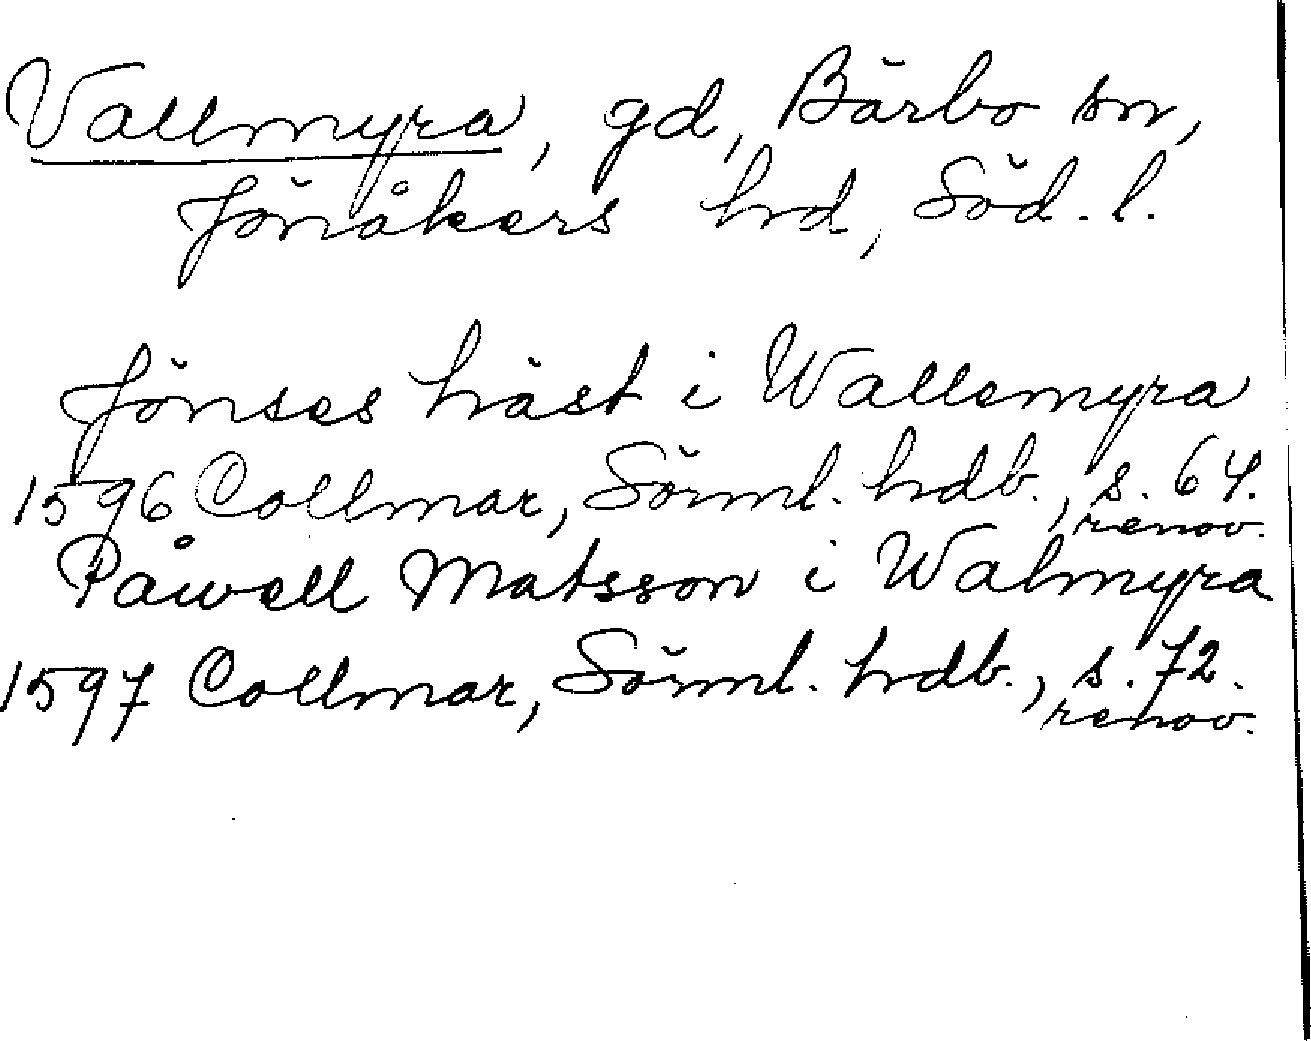 Vallmyra, gd, Bärbo sn,
Jönåkers hd, Söd. l.
Jönses häst i Wallemyra
1596 Collmar, Sörml. hdb., s. 64.
renov.
Påwell Matsson i Walmyra
1597 Collmar, Sörml. hdb., s. 72.
renov.